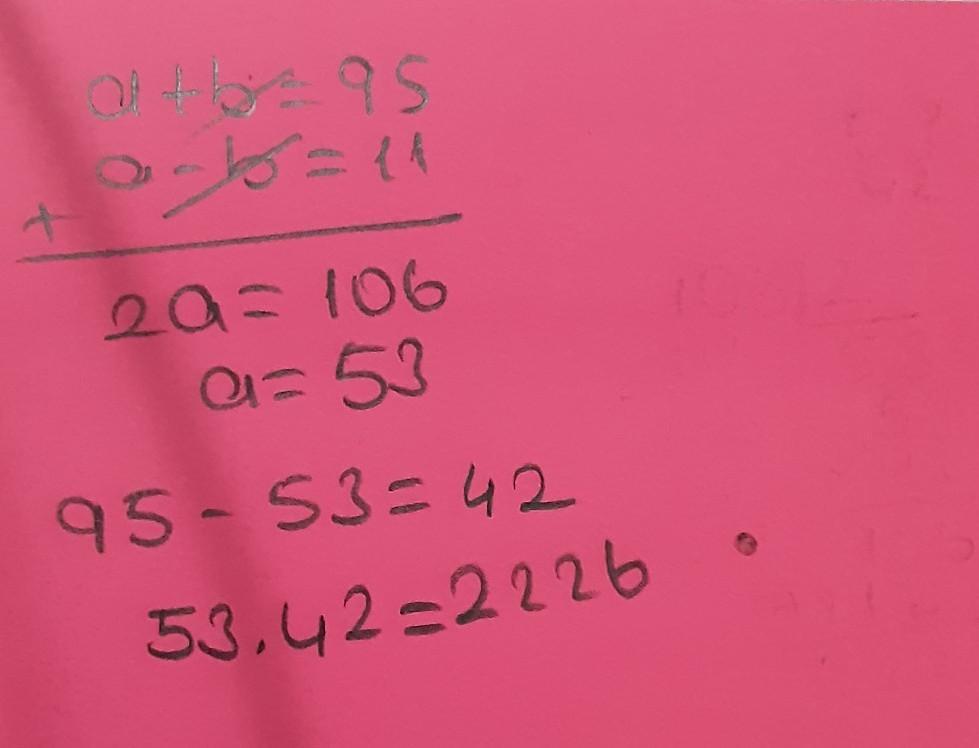 a+b=95
a-b=11
+
2a=106
a=53
95-53=42
53.42=2226